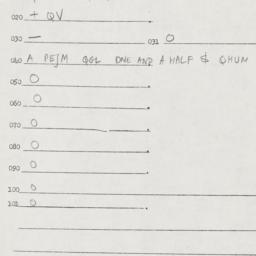 020 + QV
030 — 031 0
040 A PEJM QGL ONE AND A HALF $ QHUM
050 0
060 0
070 0
080 0
090 0
100 0
101 0